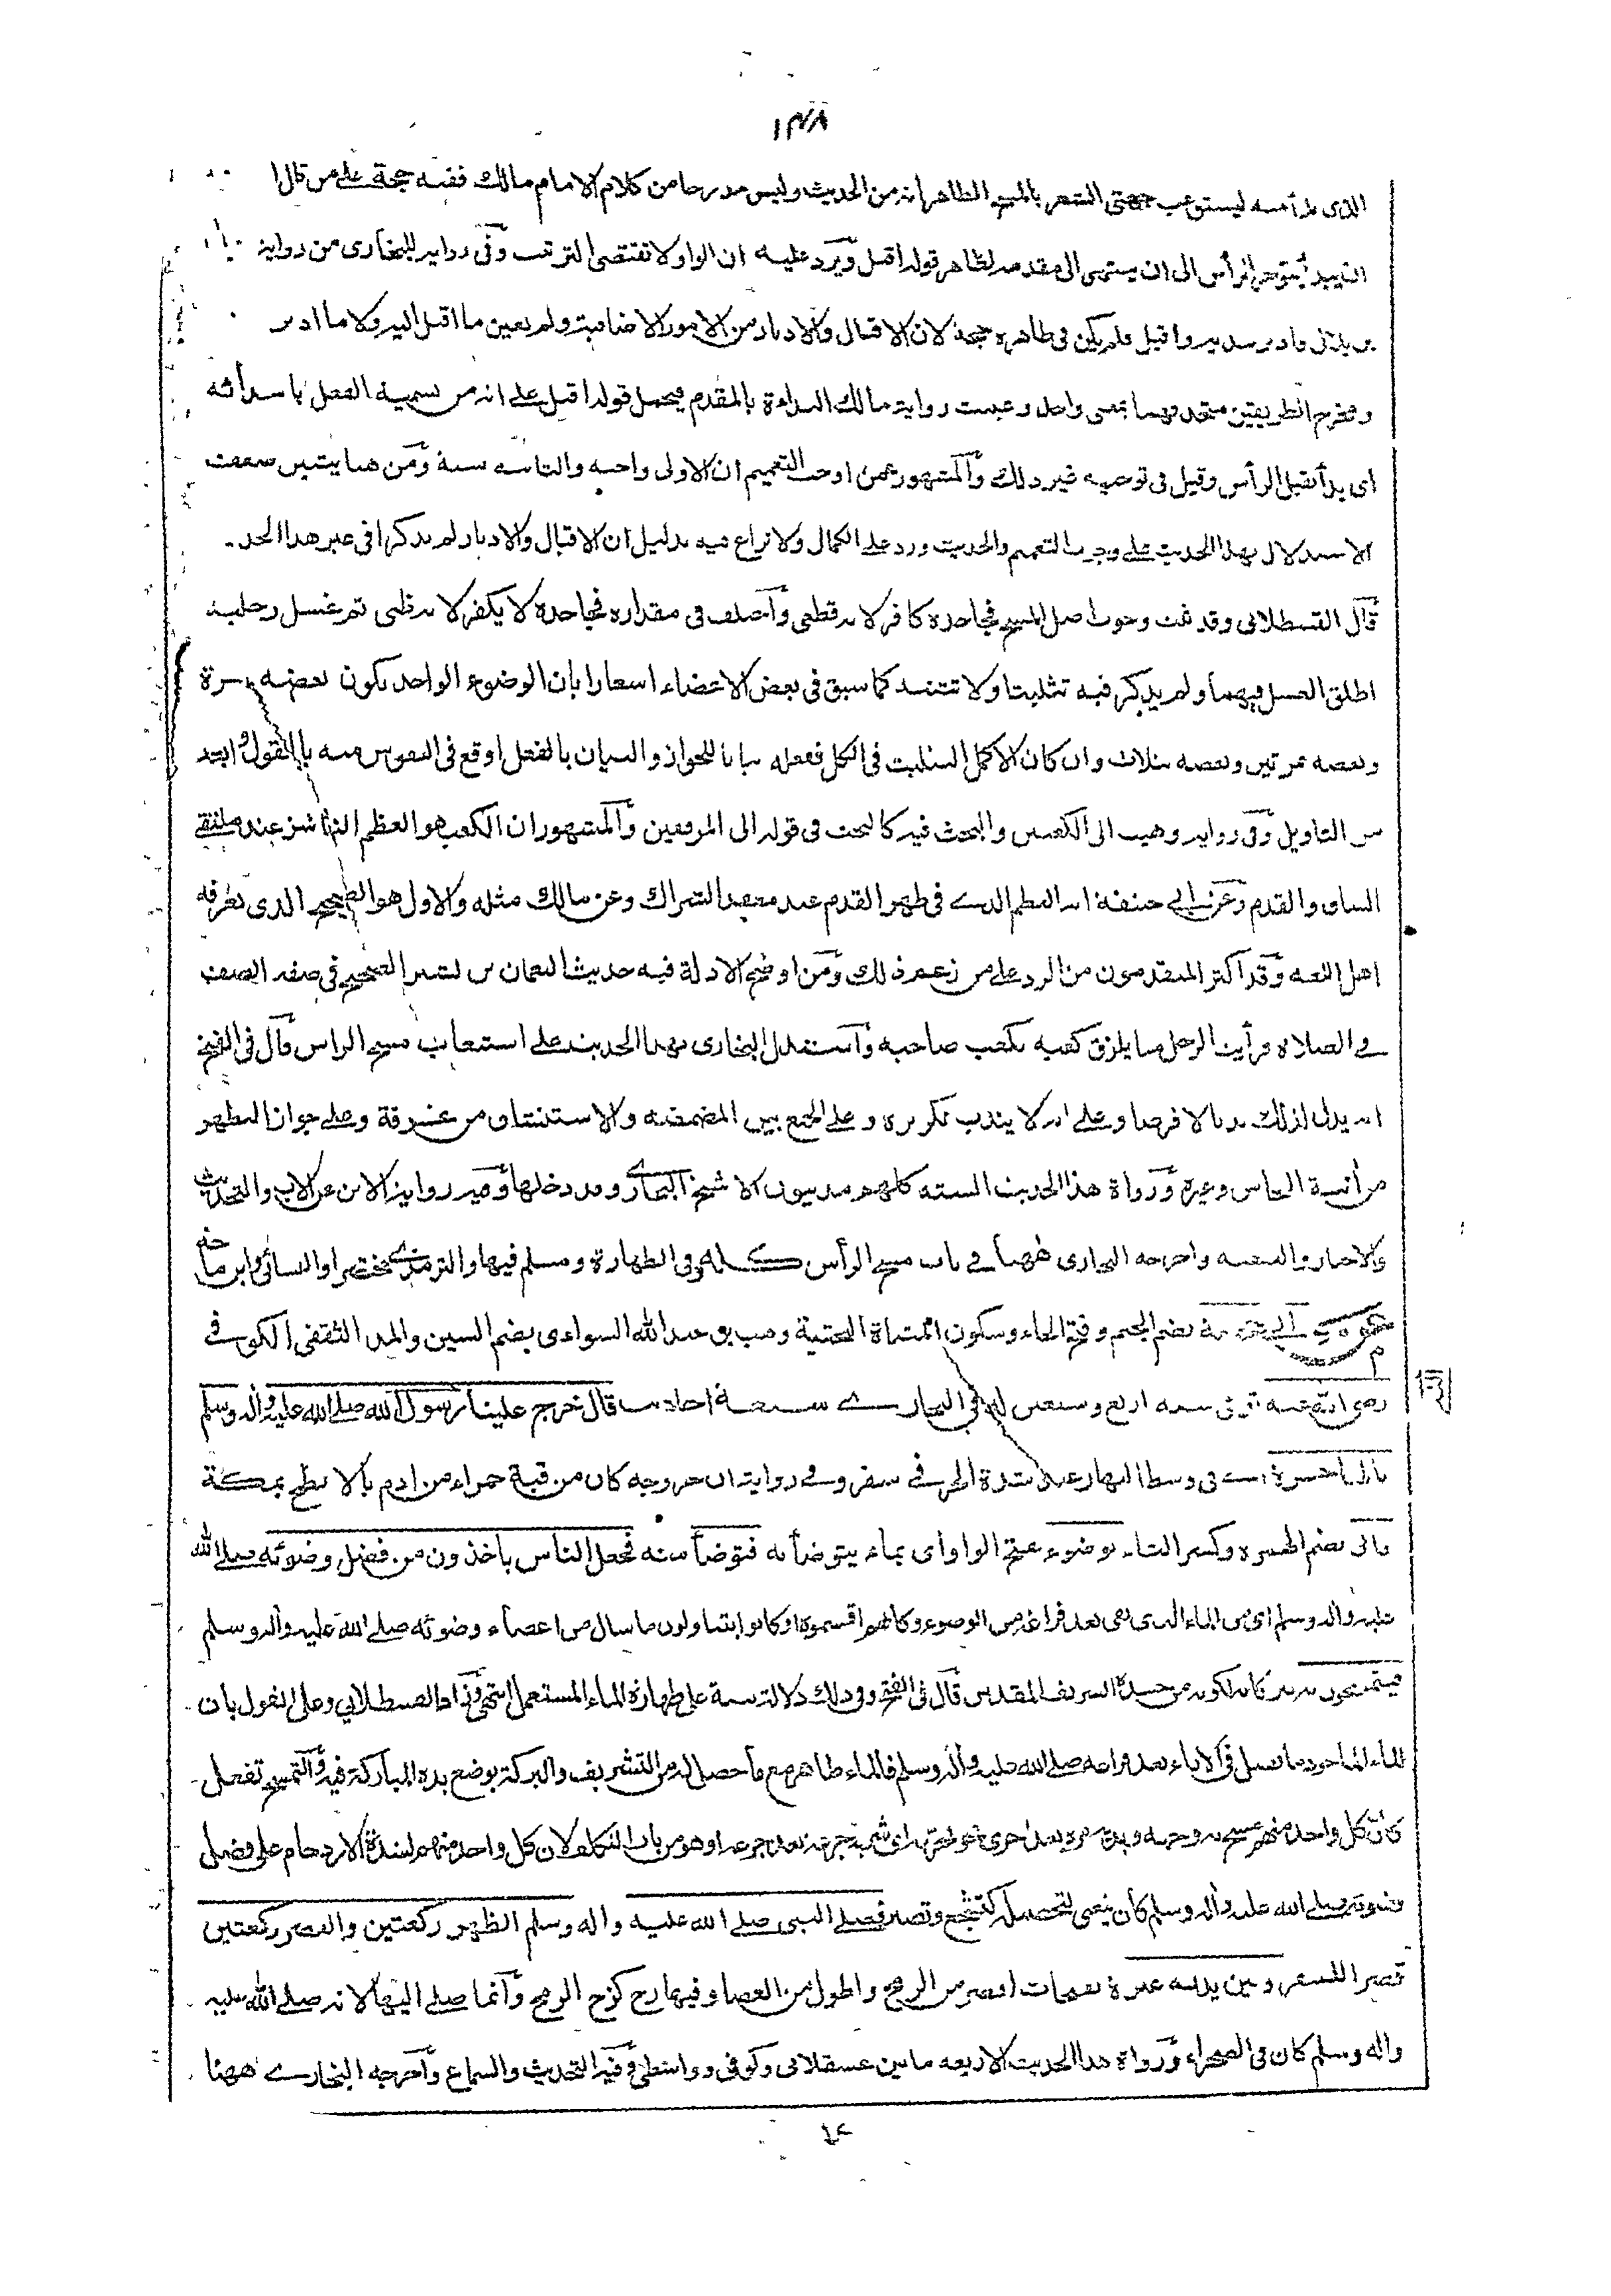 ١٣٨
الذى بدأ منه ليستوعب جهتى الشعر بالمسح الظاهر انه من الحديث وليس مدرجا من كلام الامام مالك ففيه حجة على من قال
ان يبدأ بمؤخر الرأس الى ان ينتهى الى مقدمه لظاهر قوله اقبل ويرد عليه ان الواو لا تقتضى الترتيب وفى رواية للبخارى من رواية
بن بلال وادبر بيديه واقبل فلم يكن فى ظاهره حجة لان الاقبال والادبار من الامور الاضافية ولم يعين ما اقبل اليه ولا ما ادبر
ومخرج الطريقين متحد فهما بمعنى واحد وعينت رواية مالك البداءة بالمقدم فيحمل قوله اقبل على انه من تسمية الفعل بابتدائه
اى بدأ بقبل الرأس وقيل فى توجيهه غير ذلك والمشهور عمن اوجب التعميم ان الاولى واجبة والثانية سنة ومن هنا يتبين ضعف
الاستدلال بهذا الحديث على وجوب التعميم والحديث ورد على الكمال ولا نزاع فيه بدليل ان الاقبال والادبار لم يذكرا فى غير هذا الحد
قال القسطلانى وقد ثبت وجوب اصل المسح فجاحده كافر لانه قطعى واختلف فى مقداره فجاحده لا يكفر لانه ظنى ثم غسل رجليه
اطلق الغسل فيهما ولم يذكر فيه تثليثا ولا تثنية كما سبق فى بعض الاعضاء اشعارا بان الوضوء الواحد يكون بعضه بمرة
وبعضه بمرتين وبعضه بثلاث وان كان الاكمل التثليث فى الكل ففعله بيانا للجواز والبيان بالفعل اوقع فى النفوس منه بالقول وابعد
من التاويل وفى رواية وهيب الى الكعبين والبحث فيه كالبحث فى قوله الى المرفقين والمشهور ان الكعب هو العظم الناشز عند ملتقى
الساق والقدم وعن ابى حنيفة انه العظم الذى فى ظهر القدم عند معقد الشراك وعن مالك مثله والاول هو الصحيح الذى تعرفه
اهل اللغة وقد اكثر المتقدمون من الرد على من زعم ذلك ومن اوضح الادلة فيه حديث النعمان بن بشير الصحيح فى صفة الصف
فى الصلاة فرأيت الرجل منا يلزق كعبه بكعب صاحبه واستدل البخارى بهذا الحديث على استيعاب مسح الراس قال فى الفتح
انه يدل لذلك ندبا لا فرضا وعلى انه لا يندب تكريره وعلى الجمع بين المضمضة والاستنشاق من غرفة وعلى جواز التطهر
من آنية النحاس وغيره ورواة هذا الحديث الستة كلهم مدنيون الا شيخ البخارى وقد دخلها وفيه رواية الابن عن الاب والتحديث
والاخبار والعنعنة واخرجه البخارى ههنا فى باب مسح الرأس كله وفى الطهارة ومسلم فيها والترمذى مختصرا والنسائى وابن ماجه
عن ابى جحيفة بضم الجيم وفتح الحاء وسكون المثناة التحتية وهب بن عبد الله السوائى بضم السين والمد الثقفى الكوفى
رضى الله عنه توفى سنة اربع وسبعين له فى البخارى سبعة احاديث قال خرج علينا رسول الله صلى الله عليه واله وسلم
بالهاجرة اى فى وسط النهار عند شدة الحر فى سفر وفى رواية ان خروجه كان من قبة حمراء من ادم بالابطح بمكة
فاتى بضم الهمزة وكسر التاء بوضوء بفتح الواو اى بماء يتوضأ به فتوضأ منه فجعل الناس يأخذون من فضل وضوئه صلى الله
عليه واله وسلم اى من الماء الذى بقى بعد فراغه من الوضوء وكانهم اقتسموه او كانوا يتناولون ما سال من اعضاء وضوئه صلى الله عليه واله وسلم
فيتمسحون به تبركا به لكونه من جسده الشريف المقدس قال فى الفتح وفى ذلك دلالة بينة على طهارة الماء المستعمل انتهى وزاد القسطلانى وعلى القول بان
الماء الماخوذ ما فضل فى الاناء بعد فراغه صلى الله عليه واله وسلم فالماء طاهر مع ما حصل له من التشريف والبركة بوضع يده المباركة فيه والتمسح تفعل
كان كل واحد منهم مسح به وجهه ويديه مرة بعد اخرى نحو تجرعه اى شربه جرعة بعد جرعة او هو من باب التكلف لان كل واحد منهم لشدة الازدحام على فضل
وضوئه صلى الله عليه واله وسلم كان يتعنى لتحصيله كتشجع وتصبر فصلى النبى صلى الله عليه واله وسلم الظهر ركعتين والعصر ركعتين
قصرا للسفر وبين يديه عنزة بفتحات اقصر من الرمح واطول من العصا وفيها زج كزج الرمح وانما صلى اليها لانه صلى الله عليه
واله وسلم كان فى الصحراء ورواة هذا الحديث الاربعة ما بين عسقلانى وكوفى وواسطى وفيه التحديث والسماع واخرجه البخارى ههنا